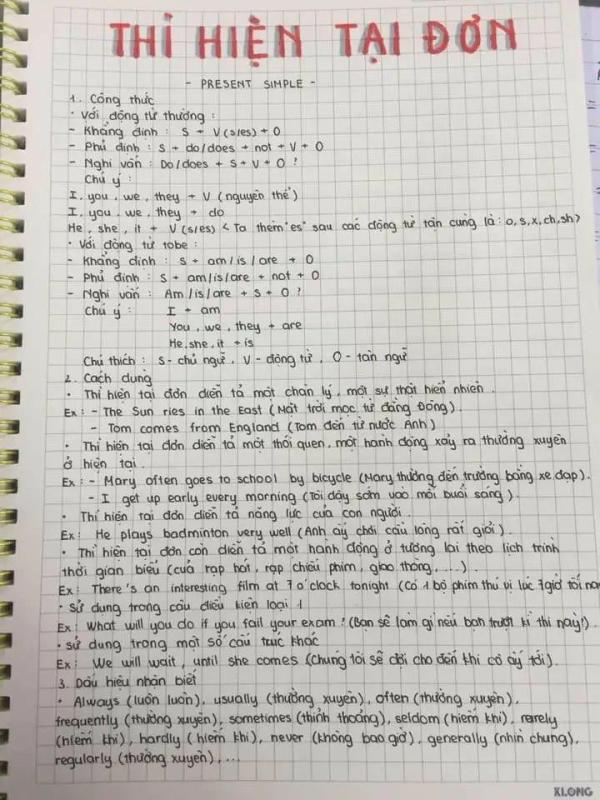 THÌ HIỆN TẠI ĐƠN
- PRESENT SIMPLE -
1. Công thức
• Với động từ thường :
- Khẳng định : S + V(s/es) + O
- Phủ định : S + do/does + not + V + O
- Nghi vấn : Do/does + S + V + O ?
Chú ý :
I, you, we, they + V (nguyên thể)
I, you, we, they + do
He, she, it + V(s/es) < Ta thêm "es" sau các động từ tận cùng là : o,s,x,ch,sh>
• Với động từ tobe :
- Khẳng định : S + am/is/are + O
- Phủ định : S + am/is/are + not + O
- Nghi vấn : Am/is/are + S + O ?
Chú ý : I + am
You, we, they + are
He, she, it + is
Chú thích : S - chủ ngữ, V - động từ, O - tân ngữ
2. Cách dùng
• Thì hiện tại đơn diễn tả một chân lý, một sự thật hiển nhiên.
Ex : - The Sun ries in the East (Mặt trời mọc từ đằng Đông).
- Tom comes from England (Tom đến từ nước Anh)
• Thì hiện tại đơn diễn tả một thói quen, một hành động xảy ra thường xuyên
ở hiện tại.
Ex : - Mary often goes to school by bicycle (Mary thường đến trường bằng xe đạp).
- I get up early every morning (Tôi dậy sớm vào mỗi buổi sáng).
• Thì hiện tại đơn diễn tả năng lực của con người.
Ex : He plays badminton very well (Anh ấy chơi cầu lông rất giỏi).
• Thì hiện tại đơn còn diễn tả một hành động ở tương lai theo lịch trình
thời gian biểu (của rạp hát, rạp chiếu phim, giao thông, ...)
Ex : There's an interesting film at 7 o'clock tonight (Có 1 bộ phim thú vị lúc 7giờ tối nay
• sử dụng trong câu điều kiện loại 1
Ex : What will you do if you fail your exam ? (Bạn sẽ làm gì nếu bạn trượt kì thi này?).
• sử dụng trong một số cấu trúc khác
Ex : We will wait, until she comes (Chúng tôi sẽ đợi cho đến khi cô ấy tới).
3. Dấu hiệu nhận biết
• Always (luôn luôn), usually (thường xuyên), often (thường xuyên),
frequently (thường xuyên), sometimes (thỉnh thoảng), seldom (hiếm khi), rarely
(hiếm khi), hardly (hiếm khi), never (không bao giờ), generally (nhìn chung),
regularly (thường xuyên), ...
KLONG